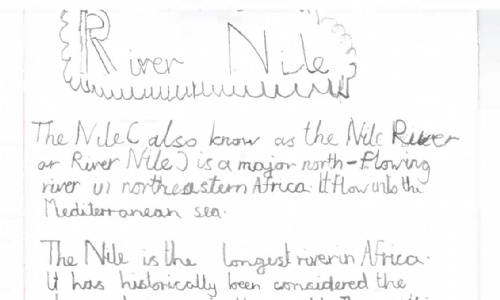 River Nile
The Nile (also know as the Nile River
or River Nile) is a major north-flowing
river in northeastern Africa. It flow into the
Mediterranean sea.
The Nile is the longest river in Africa.
It has historically been considered the